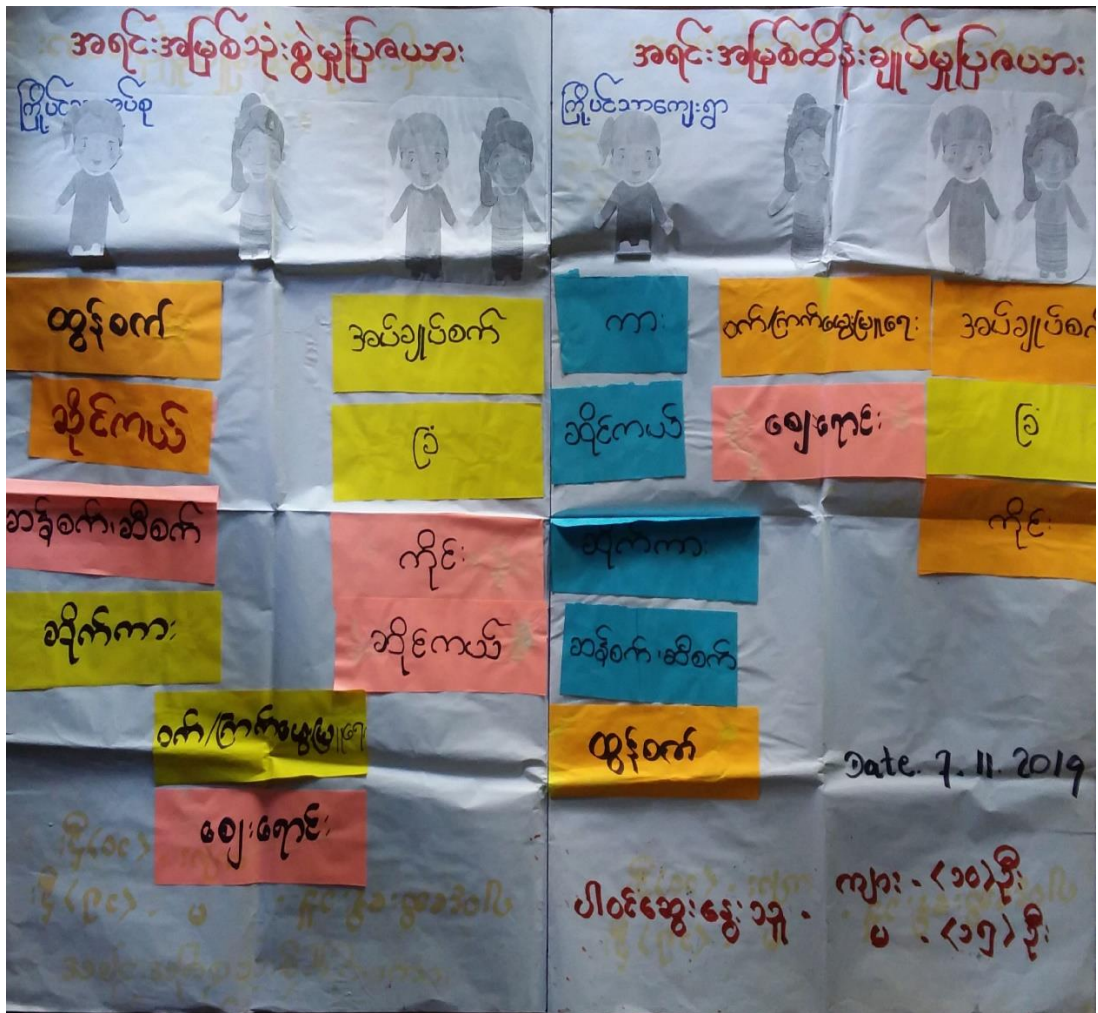 အရင်းအမြစ်သုံးစွဲမှုပြဇယား
ကြို့ပင်သာ အုပ်စု
ထွန်စက်
ဆိုင်ကယ်
ဆန်စက်၊ဆီစက်
ဆိုက်ကား
အပ်ချုပ်စက်
ခြံ
ကိုင်း
ဆိုင်ကယ်
ဝက်/ကြက်မွေးမြူရေး
ဈေးရောင်း
အရင်းအမြစ်ထိန်းချုပ်မှုပြဇယား
ကြို့ပင်သာကျေးရွာ
ကား
ဆိုင်ကယ်
ဆိုက်ကား
ဆန်စက်၊ဆီစက်
ထွန်စက်
ဝက်/ကြက်မွေးမြူရေး
ဈေးရောင်း
အပ်ချုပ်စက်
ခြံ
ကိုင်း
Date. 7. 11. 2019
ပါဝင်ဆွေးနွေးသူ - ကျား - (၁၀)ဦး
မ - (၁၅)ဦး